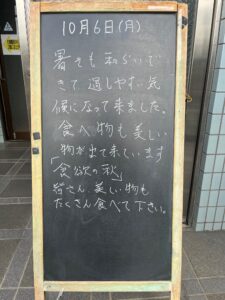 10月6日(月)
暑さも和らいで
きて過しやすい気
候になって来ました。
食べ物も美しい
物が出て来ています
「食欲の秋」
皆さん、美しい物も
たくさん食べて下さい。